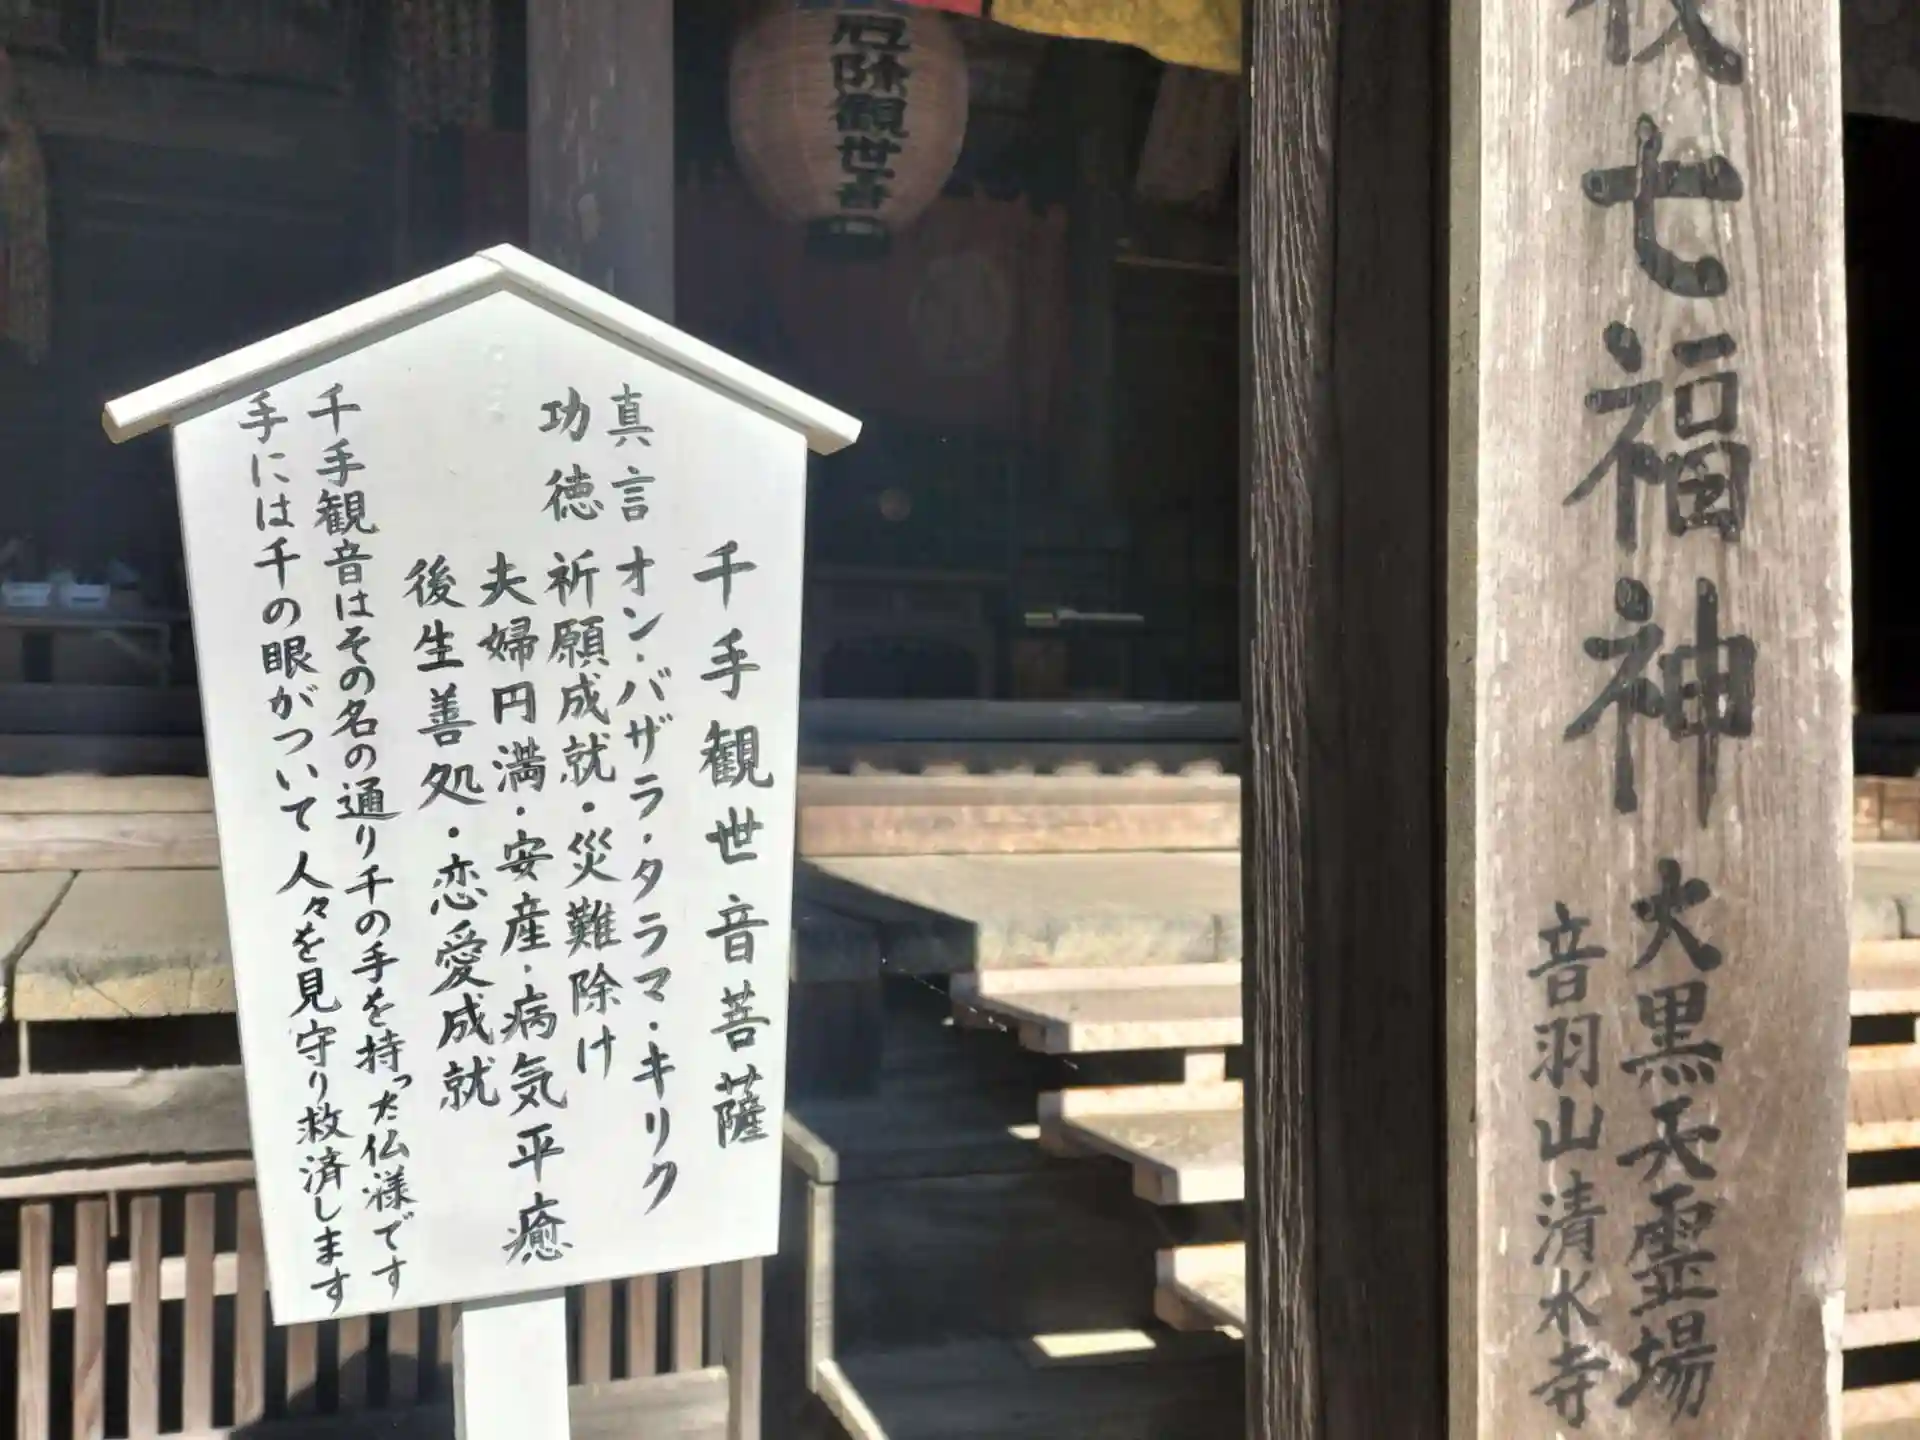 厄除観世音
千手観世音菩薩
真言 オン・バザラ・タラマ・キリク
功徳 祈願成就・災難除け
夫婦円満・安産・病気平癒
後生善処・恋愛成就
千手観音はその名の通り千の手を持った仏様です
手には千の眼がついて人々を見守り救済します
七福神
大黒天霊場
音羽山清水寺